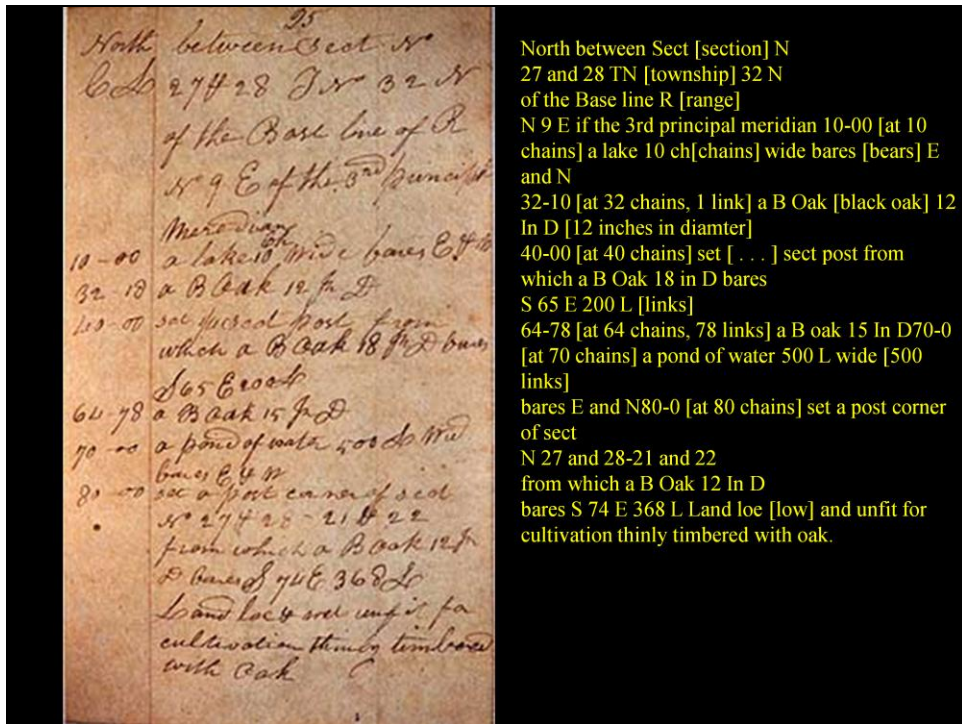 95
North between Sect N
C L 27 & 28 T N 32 N
of the Base line of R
N 9 E of the 3rd principl
Meredian
10-00 a lake 10 ch Wide bares E &
32-18 a B Oak 12 In D
40-00 set post from
which a B Oak 18 In D bares
S 65 E 200 L
64-78 a B Oak 15 In D
70-00 a pond of water 500 L Wid
bares E & W
80-00 set a post corner of sect
N 27 & 28 - 21 & 22
from which a B Oak 12 In
D bares S 74 E 368 L
Land loe & wet unfit for
cultivation thinly timbered
with Oak
North between Sect [section] N
27 and 28 TN [township] 32 N
of the Base line R [range]
N 9 E if the 3rd principal meridian 10-00 [at 10
chains] a lake 10 ch[chains] wide bares [bears] E
and N
32-10 [at 32 chains, 1 link] a B Oak [black oak] 12
In D [12 inches in diamter]
40-00 [at 40 chains] set [ . . . ] sect post from
which a B Oak 18 in D bares
S 65 E 200 L [links]
64-78 [at 64 chains, 78 links] a B oak 15 In D70-0
[at 70 chains] a pond of water 500 L wide [500
links]
bares E and N80-0 [at 80 chains] set a post corner
of sect
N 27 and 28-21 and 22
from which a B Oak 12 In D
bares S 74 E 368 L Land loe [low] and unfit for
cultivation thinly timbered with oak.